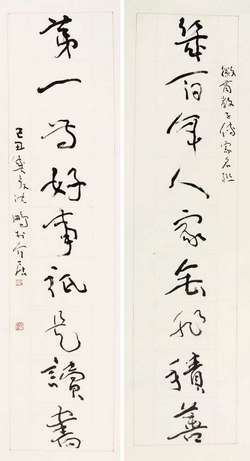 徽商教子傳家名联
幾百年人家無非積善
第一等好事祇是讀書
己丑沈鵬於介居